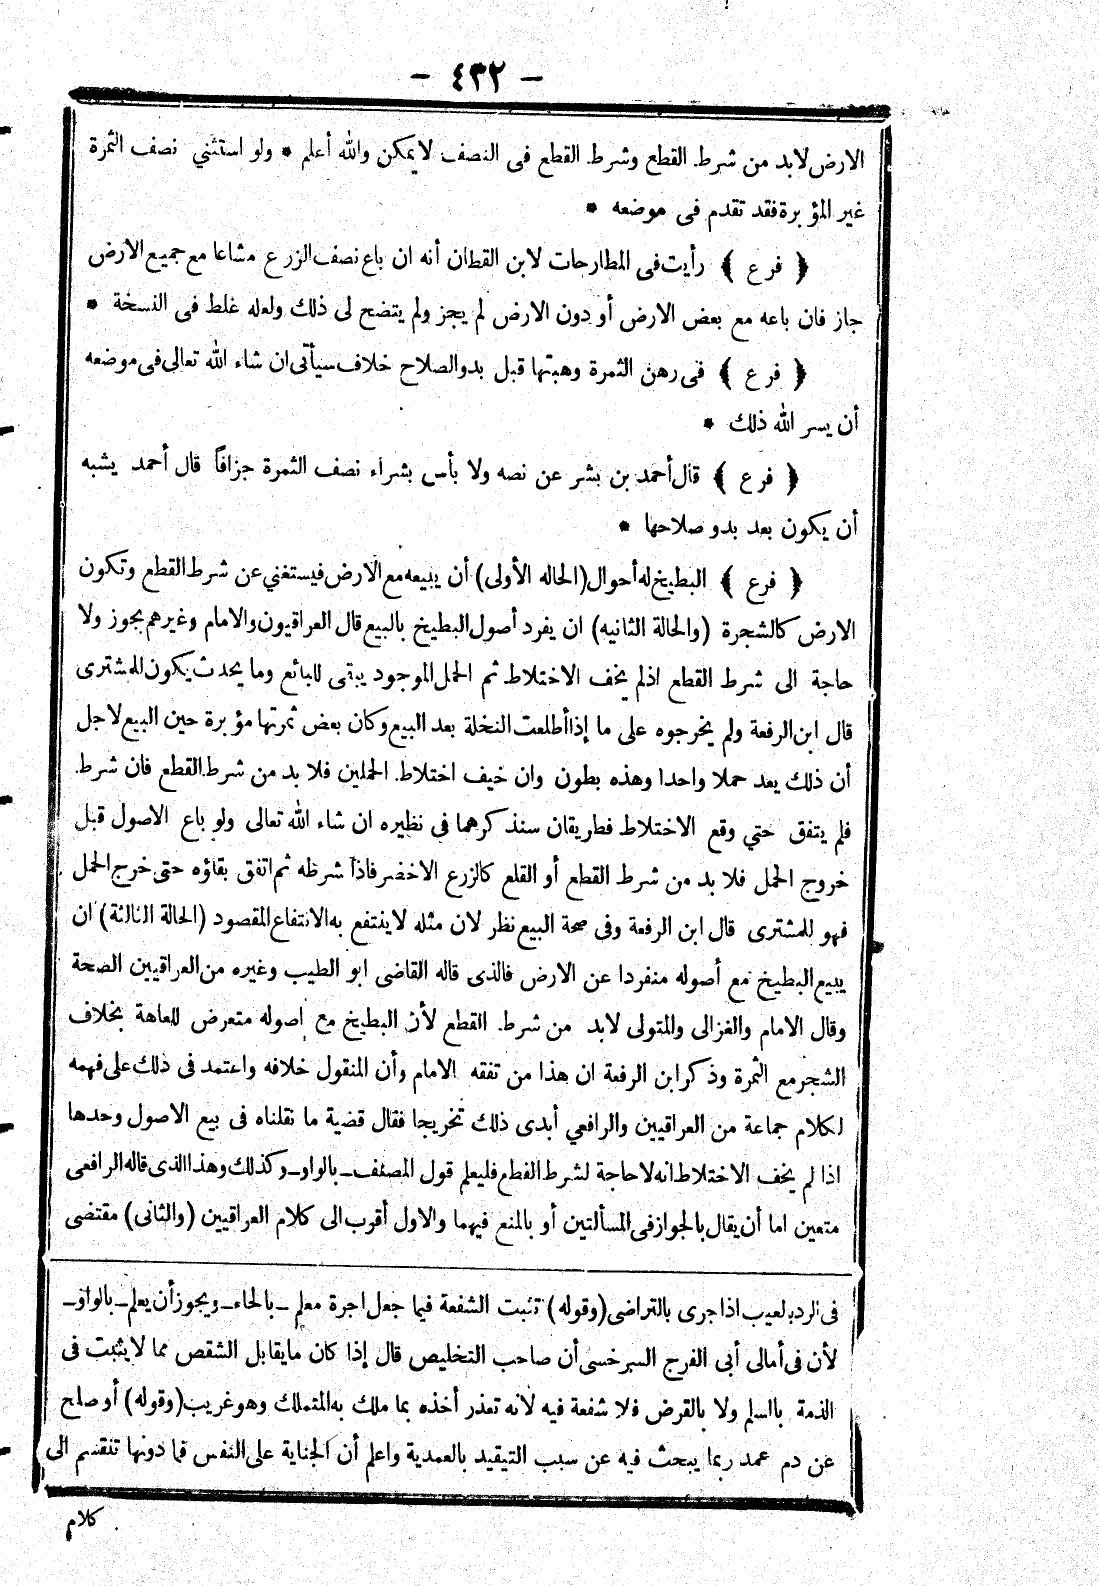 - ٤٣٢ -
الارض لابد من شرط القطع وشرط القطع فى النصف لايمكن والله أعلم * ولو استثني نصف الثمرة
غير المؤبرة فقد تقدم فى موضعه *
﴿ فرع ﴾ رأيت فى المطارحات لابن القطان أنه ان باع نصف الزرع مشاعا مع جميع الارض
جاز فان باعه مع بعض الارض أو دون الارض لم يجز ولم يتضح لى ذلك ولعله غلط فى النسخة *
﴿ فرع ﴾ فى رهن الثمرة وهبتها قبل بدو الصلاح خلاف سيأتى ان شاء الله تعالى فى موضعه
أن يسر الله ذلك *
﴿ فرع ﴾ قال أحمد بن بشر عن نصه ولا بأس بشراء نصف الثمرة جزافاً قال أحمد يشبه
أن يكون بعد بدو صلاحها *
﴿ فرع ﴾ البطيخ له أحوال (الحاله الأولى) أن يبيعه مع الارض فيستغني عن شرط القطع وتكون
الارض كالشجرة (والحالة الثانيه) ان يفرد أصول البطيخ بالبيع قال العراقيون والامام وغيرهم يجوز ولا
حاجة الى شرط القطع اذلم يخف الاختلاط ثم الحمل الموجود يبقى للبائع وما يحدث يكون للمشترى
قال ابن الرفعة ولم يخرجوه على ما إذا أطلعت النخلة بعد البيع وكان بعض ثمرتها مؤبرة حين البيع لاجل
أن ذلك يعد حملا واحدا وهذه بطون وان خيف اختلاط الحملين فلا بد من شرط القطع فان شرط
فلم يتفق حتي وقع الاختلاط فطريقان سنذكرهما فى نظيره ان شاء الله تعالى ولو باع الاصول قبل
خروج الحمل فلا بد من شرط القطع أو القلع كالزرع الاخضر فاذا شرطه ثم اتفق بقاؤه حتى خرج الحمل
فهو للمشترى قال ابن الرفعة وفى صحة البيع نظر لان مثله لا ينتفع به الانتفاع المقصود (الحالة الثالثة) ان
يبيع البطيخ مع أصوله منفردا عن الارض فالذى قاله القاضى ابو الطيب وغيره من العراقيين الصحة
وقال الامام والغزالى والمتولى لابد من شرط القطع لأن البطيخ مع اصوله متعرض للعاهة بخلاف
الشجر مع الثمرة وذكر ابن الرفعة ان هذا من تفقه الامام وأن المنقول خلافه واعتمد فى ذلك على فهمه
لكلام جماعة من العراقيين والرافعي أبدى ذلك تخريجا فقال قضية ما نقلناه فى بيع الاصول وحدها
اذا لم يخف الاختلاط انه لا حاجة لشرط القطع فليعلم قول المصنف ـ بالواو ـ وكذلك وهذا الذى قاله الرافعى
متعين اما أن يقال بالجواز فى المسألتين أو بالمنع فيهما والاول أقرب الى كلام العراقيين (والثانى) مقتضى
فى الرد بالعيب اذا جرى بالتراضى (وقوله) تثبت الشفعة فيما جعل اجرة معلم ـ بالحاء ـ ويجوز أن يعلم ـ بالواو ـ
لأن فى أمالى أبى الفرج السرخسى أن صاحب التخليص قال إذا كان ما يقابل الشقص مما لا يثبت فى
الذمة بالسلم ولا بالقرض فلا شفعة فيه لانه تعذر أخذه بما ملك به المتملك وهو غريب (وقوله) أو صلح
عن دم عمد ربما يبحث فيه عن سبب التيقيد بالعمدية واعلم أن الجناية على النفس فما دونها تنقسم الى
كلام